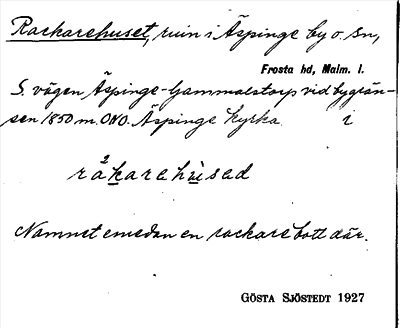 Rackarehuset, ruin i Äspinge by o. sn,
Frosta hd, Malm. l.
S. vägen Äspinge-Gammalstorp vid bygrän-
sen 1850 m. ONO. Äspinge kyrka i
råkarehùsad
Namnet emedan en rackare bott där.
GÖSTA SJÖSTEDT 1927